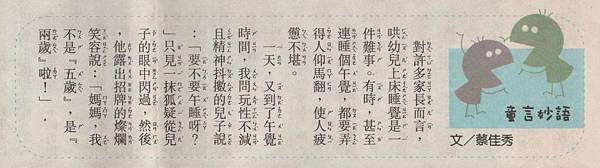 童言妙語
文／蔡佳秀
對許多家長而言，
哄幼兒上床睡覺是一
件難事。有時，甚至
連睡個午覺，都要弄
得人仰馬翻，使人疲
憊不堪。
一天，又到了午覺
時間，我問玩性不減
且精神抖擻的兒子說
：「要不要午睡呀？
」只見一抹狐疑從兒
子的眼中閃過，然後
，他露出招牌的燦爛
笑容說：「媽媽，我
不是『五歲』，是『
兩歲』啦！」